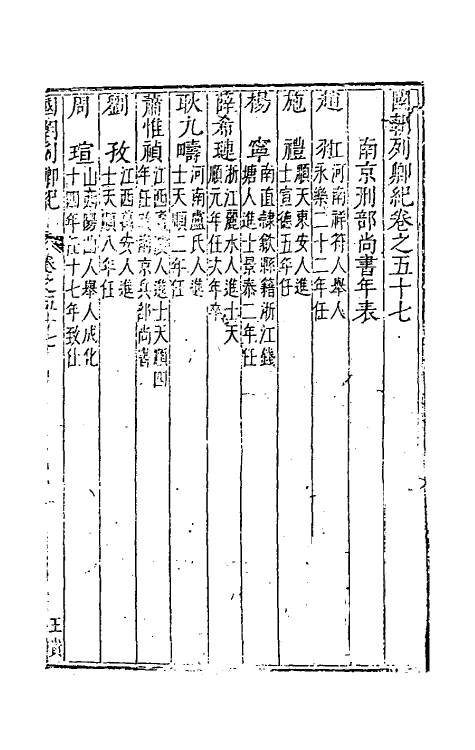 國朝列卿紀卷之五十七
南京刑部尚書年表
趙 羾 河南祥符人舉人永樂二十二年任
施 禮 順天東安人進士宣德五年任
楊 寧 南直隸歙縣籍浙江錢塘人進士景泰二年任
薛希璉 浙江麗水人進士天順元年任次年卒
耿九疇 河南盧氏人進士天順二年任
蕭惟禎 江西人進士天順四年任改南京兵部尚書
劉 孜 江西萬安人進士天順八年任
周 瑄 山西陽曲人舉人成化十四年任十七年致仕
國朝列卿紀 卷之五十七